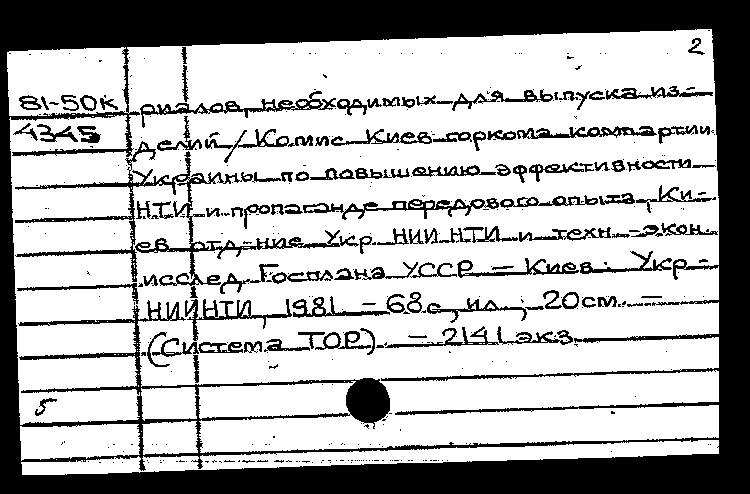 2
81-50к риалов, необходимых для выпуска из-
4345 делий / Комис. Киев. горкома компартии
Украины по повышению эффективности
НТИ и пропаганде передового опыта, Ки-
ев. отд-ние Укр. НИИ НТИ и техн.-экон.
исслед. Госплана УССР. — Киев: Укр-
НИИНТИ, 1981. — 68 с., ил.; 20 см. —
(Система ТОР). — 2141 экз.
5